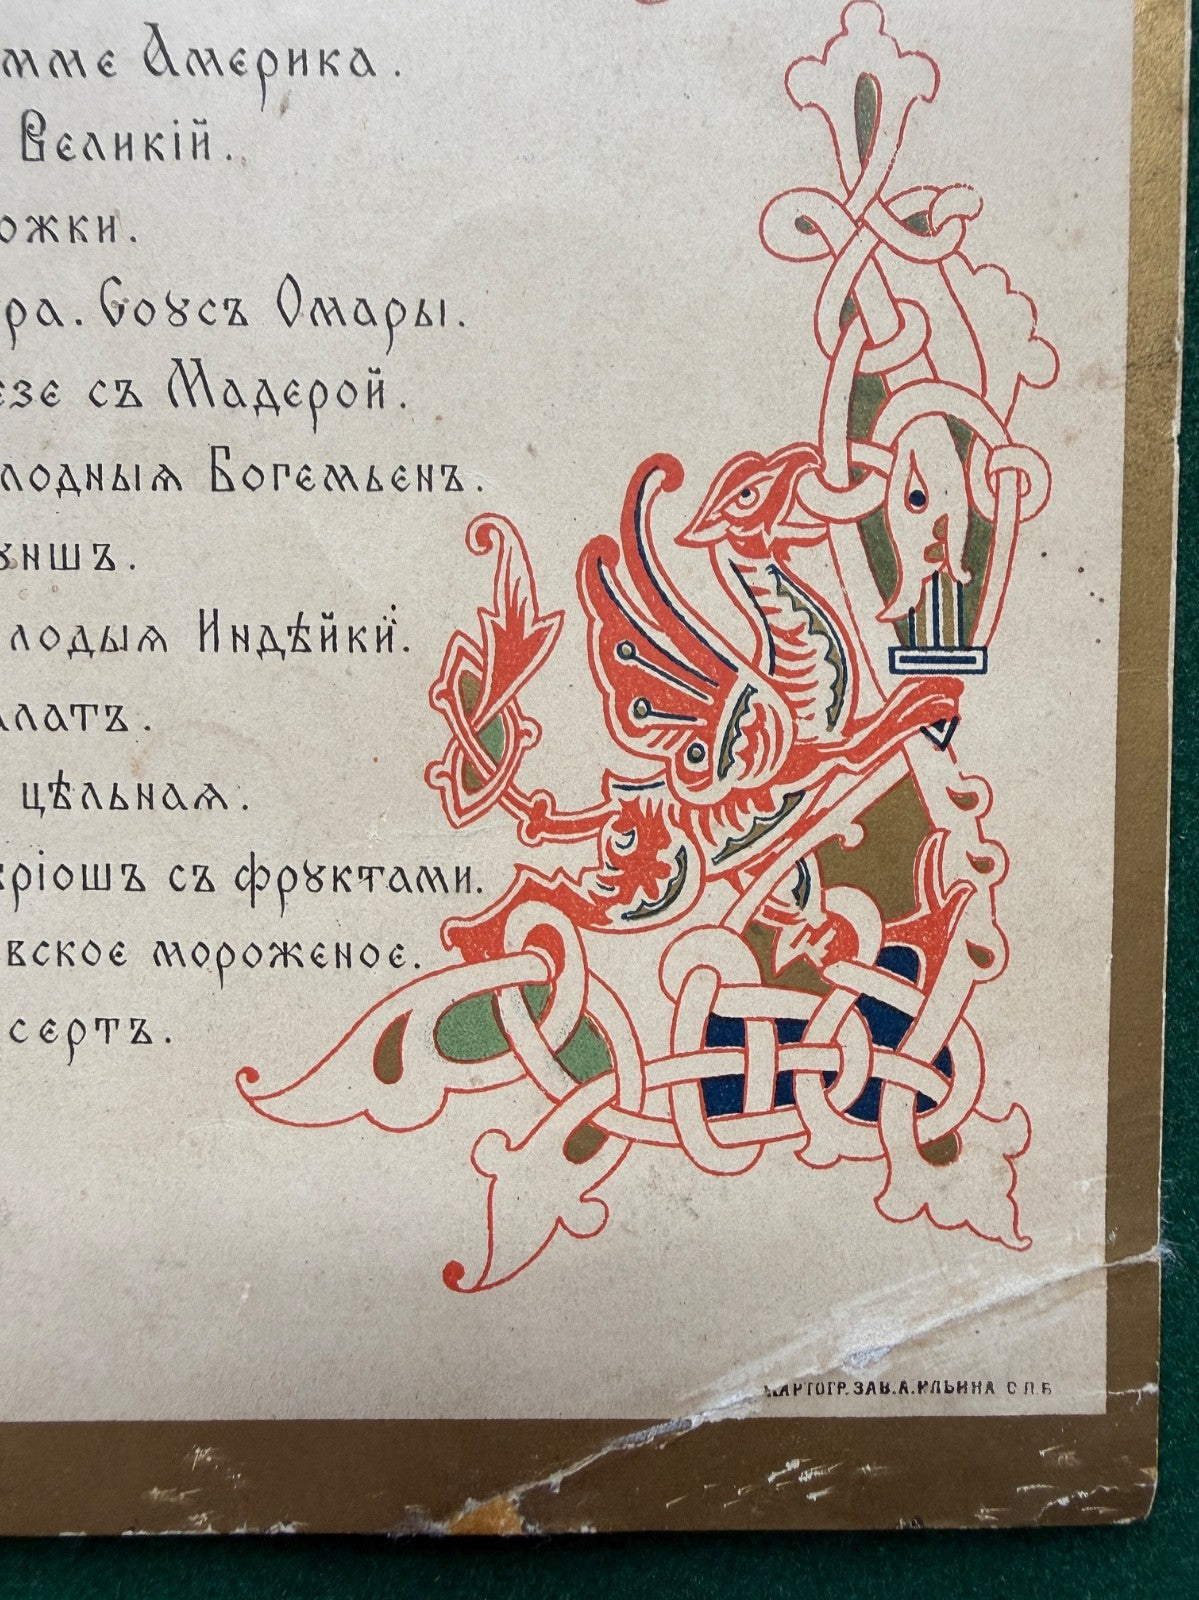 омме Америка.
Великій.
ожки.
ра. Соусъ Омары.
езе съ Мадерой.
лодныя Богемьенъ.
уншъ.
лодыя Индѣйки.
алатъ.
цѣльная.
кріошъ съ фруктами.
вское мороженое.
сертъ.
КАРТОГР. ЗАВ. А. ИЛЬИНА С П. Б